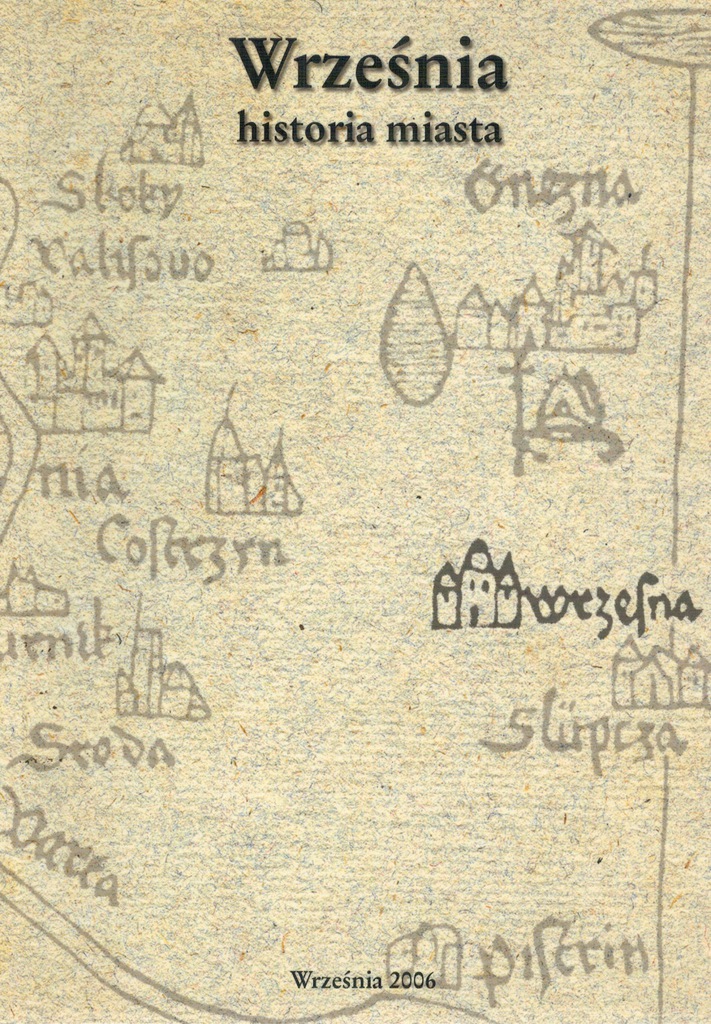 Września
historia miasta
Skoky
Gnezna
Valisovo
nia
Costrzyn
wrzesna
urnik
Slupcza
Sroda
Warta
pistrin
Września 2006